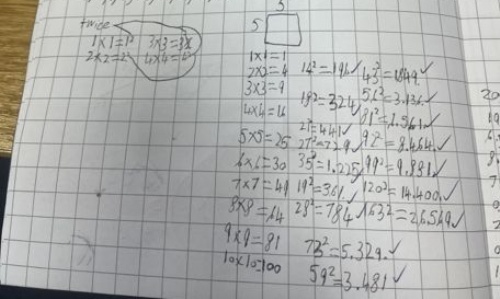 twice
1x1=1² 3x3=3²
2x2=2² 4x4=4²
5
1x1=1
2x2=4
3x3=9
4x4=16
5x5=25
6x6=30
7x7=49
8x8=64
9x9=81
10x10=100
14²=196✓
18²=324✓
21²=441✓
27²=729✓
35²=1.225✓
19²=361✓
28²=784✓
73²=5.329.✓
59²=3.481✓
43²=1849.✓
56²=3.136.✓
81²=6.561.✓
92²=8.464.✓
99²=9.801.✓
120²=14.400.✓
163²=26569.✓